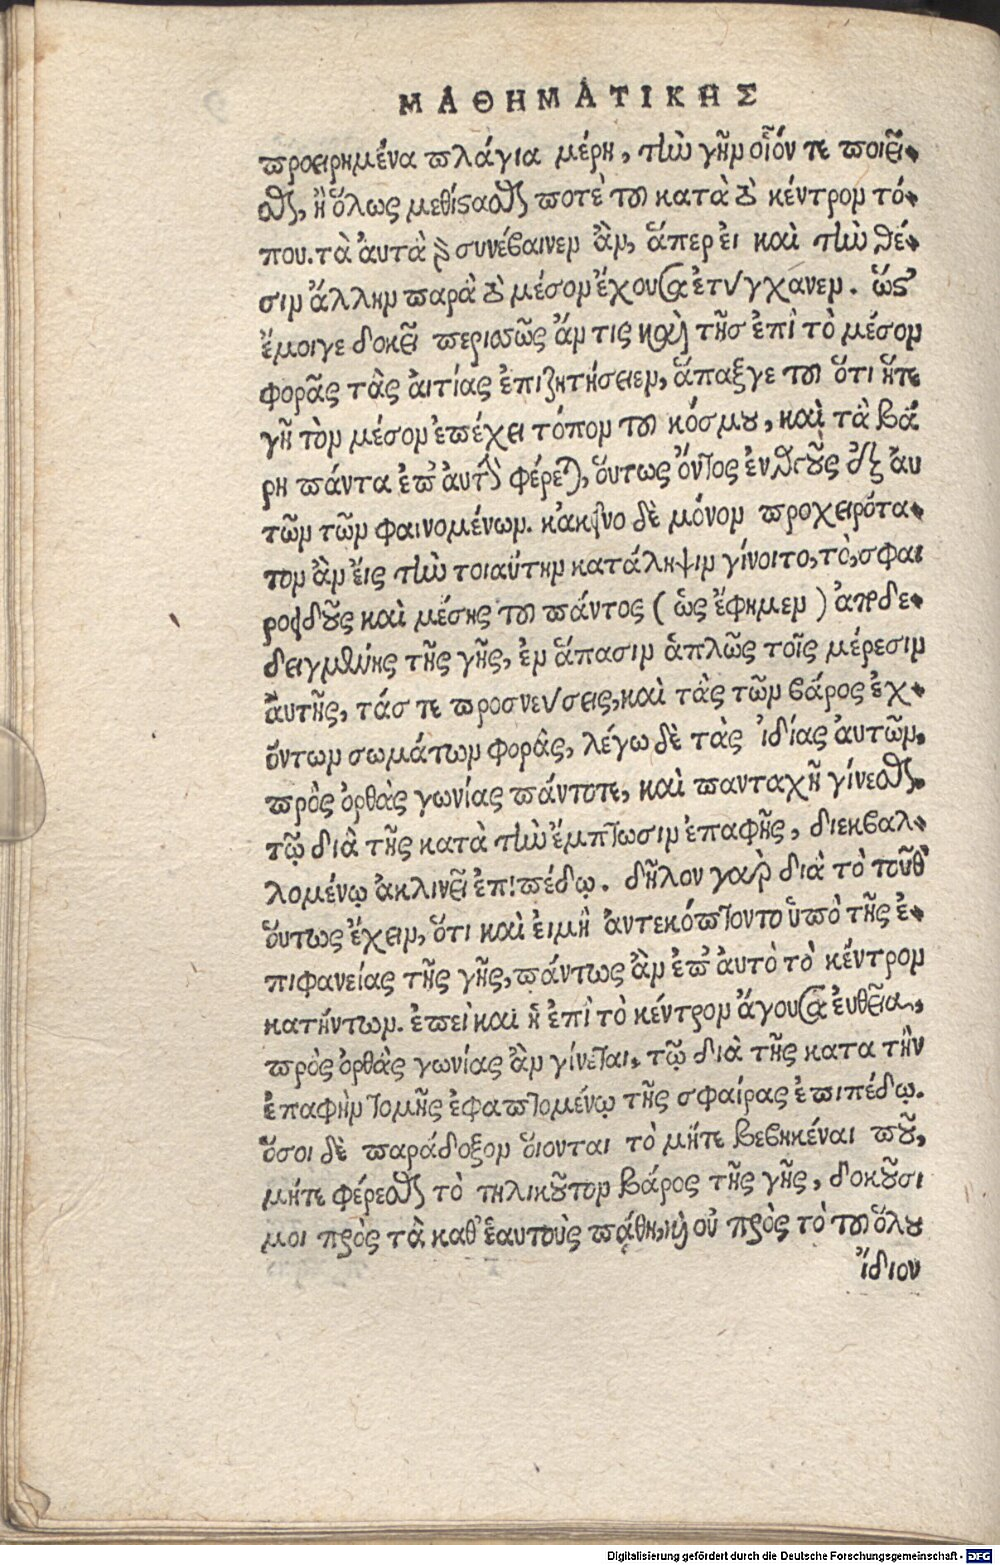 ΜΑΘΗΜΑΤΙΚΗΣ
προειρημένα πλάγια μέρη, τὴν γῆν οἷόν τε ποιεῖ-
σθαι, ἢ ὅλως μεθίστασθαί ποτε τοῦ κατὰ τὸ κέντρον τό-
που. τὰ ἀυτὰ γὰρ συνέβαινεν ἂν, ἅπερ ἐι καὶ τὴν θέ-
σιν ἄλλην παρὰ τὸ μέσον ἔχουσα ἐτύγχανεν. ὥστ'
ἔμοιγε δοκεῖ περισσῶς ἄν τις καὶ τῆσ ἐπὶ τὸ μέσον
φορᾶς τὰς ἀιτίας ἐπιζητήσειεν, ἅπαξ γε τοῦ ὅτι ἥτε
γῆ τὸν μέσον ἐπέχει τόπον τοῦ κόσμου, καὶ τὰ βά
ρη πάντα ἐπ' ἀυτὴν φέρεται, ὅυτως ὄντος ἐναργοῦς ἐξ ἀυ
τῶν τῶν φαινομένων. κἀκεῖνο δὲ μόνον προχειρότα-
τον ἂν ἐις τὴν τοιαύτην κατάληψιν γίνοιτο, τὸ, σφαι
ροειδοῦς καὶ μέσης τοῦ πάντος (ὡς ἔφημεν) ἀποδε-
δειγμένης τῆς γῆς, ἐν ἅπασιν ἁπλῶς τοῖς μέρεσιν
ἀυτῆς, τάς τε προσνεύσεις, καὶ τὰς τῶν βάρος ἐχ-
όντων σωμάτων φορὰς, λέγω δὲ τὰς ἰδίας ἀυτῶν,
πρὸς ὀρθὰς γωνίας πάντοτε, καὶ πανταχῆ γίνεσθαι,
τῷ διὰ τῆς κατὰ τὴν ἔμπτωσιν ἐπαφῆς, διεκβαλ-
λομένῳ ἀκλινεῖ ἐπιπέδῳ. δῆλον γὰρ διὰ τὸ τοῦθ'
ὅυτως ἔχειν, ὅτι καὶ ἐιμὴ ἀντεκόπτοντο ὑπὸ τῆς ἐ-
πιφανείας τῆς γῆς, πάντως ἂν ἐπ' ἀυτὸ τὸ κέντρον
κατήντων. ἐπεὶ καὶ ἡ ἐπὶ τὸ κέντρον ἄγουσα ἐυθεῖα,
πρὸς ὀρθὰς γωνίας ἂν γίνεται, τῷ διὰ τῆς κατα τὴν
ἐπαφὴν τομῆς ἐφαπτομένῳ τῆς σφαίρας ἐπιπέδῳ.
ὅσοι δὲ παράδοξον ὅιονται τὸ μήτε βεβηκέναι ποῦ,
μήτε φέρεσθαι τὸ τηλικοῦτον βάρος τῆς γῆς, δοκοῦσι
μοι πρὸς τὰ καθ' ἑαυτοὺς πάθη, καὶ οὐ πρὸς τὸ τοῦ ὅλου
ἴδιον